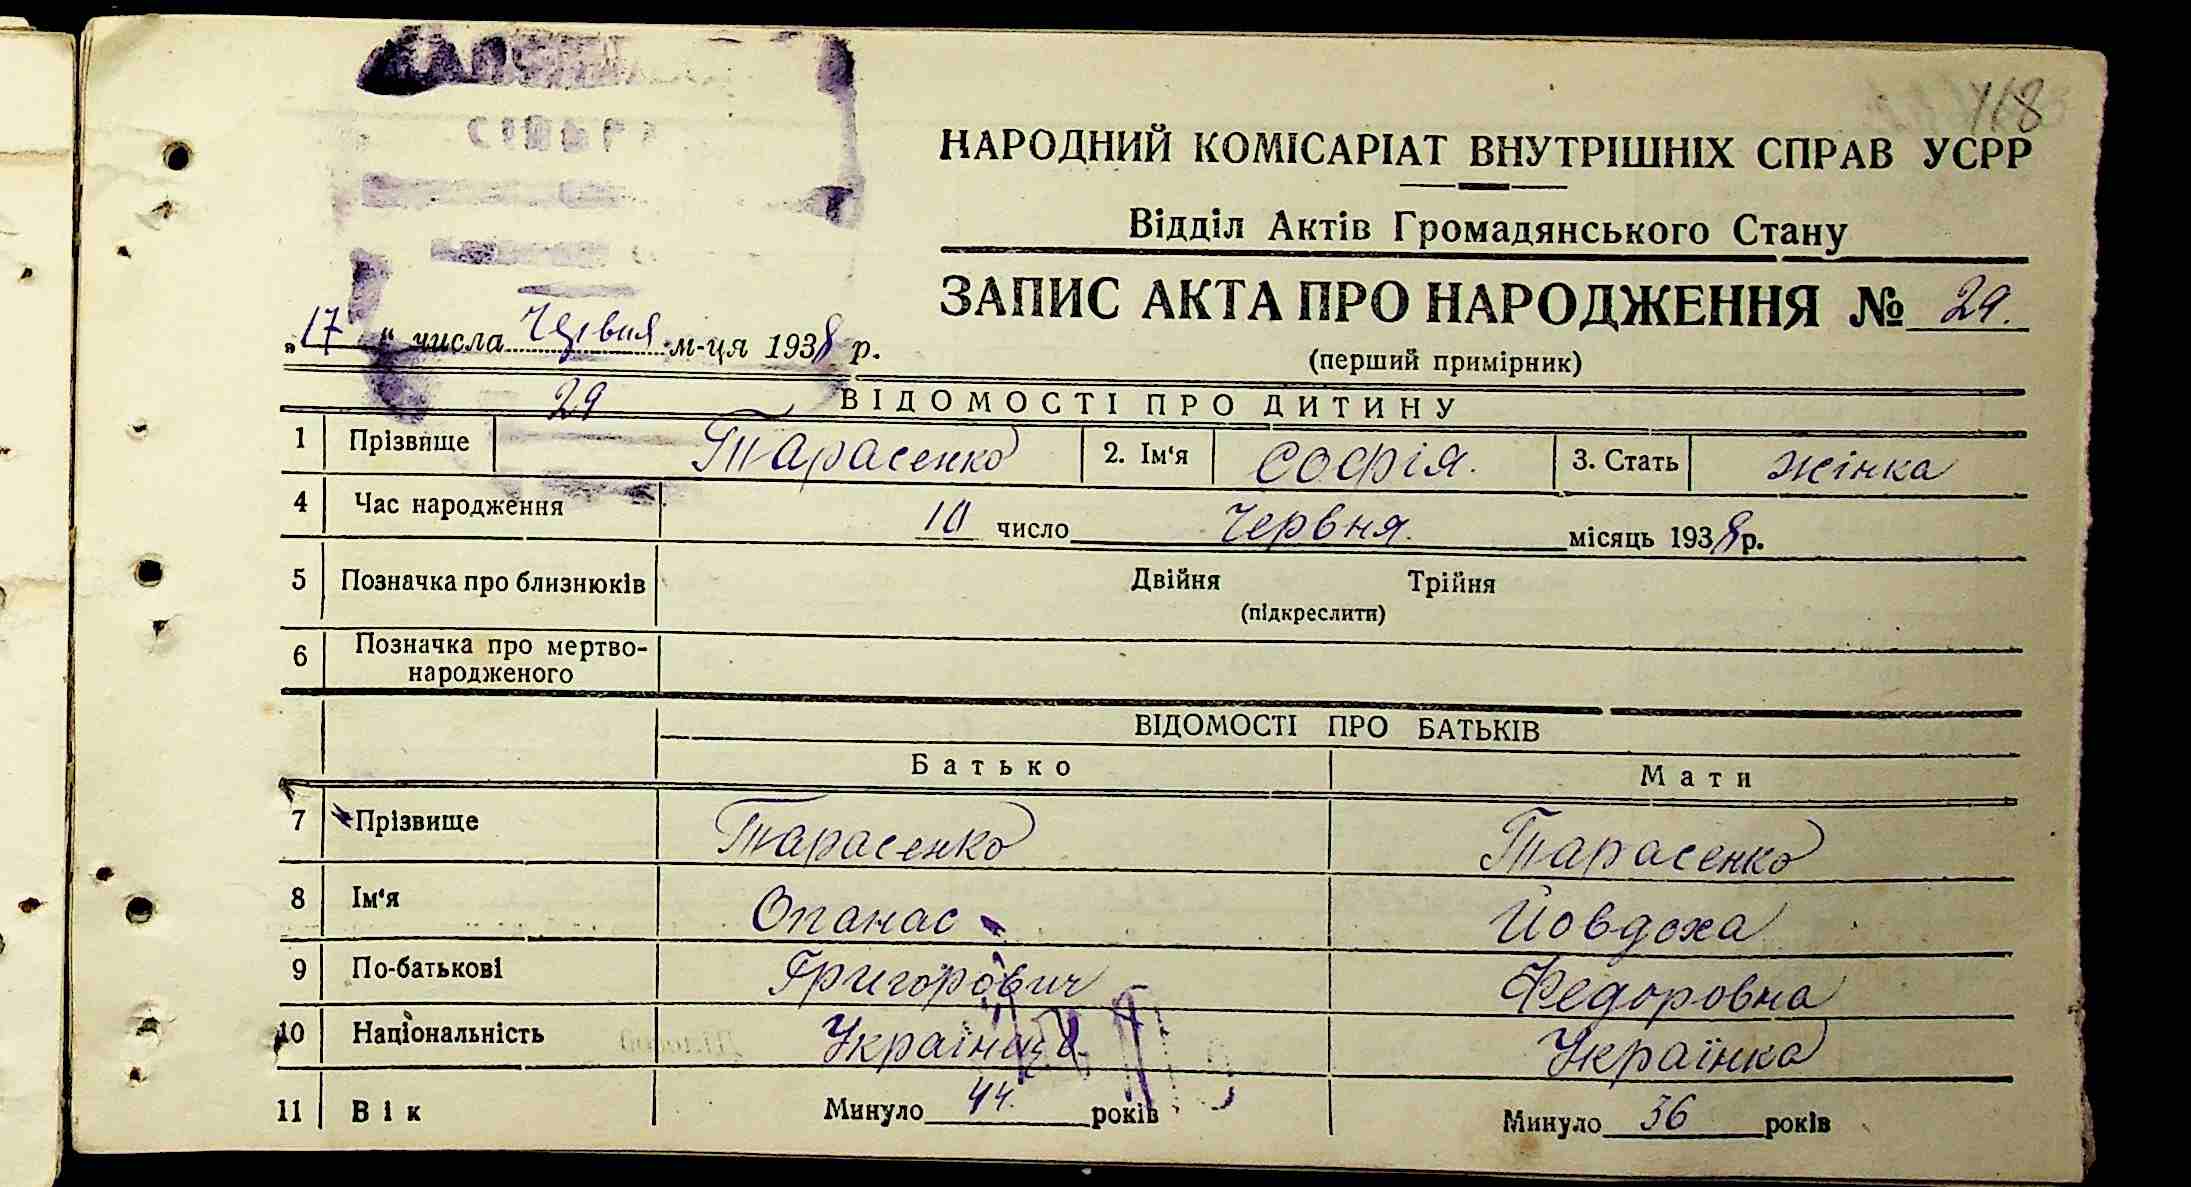 118
НАРОДНИЙ КОМІСАРІАТ ВНУТРІШНІХ СПРАВ УСРР
Відділ Актів Громадянського Стану
ЗАПИС АКТА ПРО НАРОДЖЕННЯ № 29.
(перший примірник)
„17“ числа Червня м-ця 1938 р.
29
ВІДОМОСТІ ПРО ДИТИНУ
1 Прізвище Тарасенко 2. Ім‘я Софія. 3. Стать жінка
4 Час народження 10 число Червня. місяць 1938 р.
5 Позначка про близнюків Двійня Трійня
(підкреслити)
6 Позначка про мертво-
народженого
ВІДОМОСТІ ПРО БАТЬКІВ
Батько Мати
7 Прізвище Тарасенко Тарасенко
8 Ім‘я Опанас Йовдоха
9 По-батькові Григорович Федоровна
10 Національність Українець Українка
11 Вік Минуло 44. років Минуло 36 років